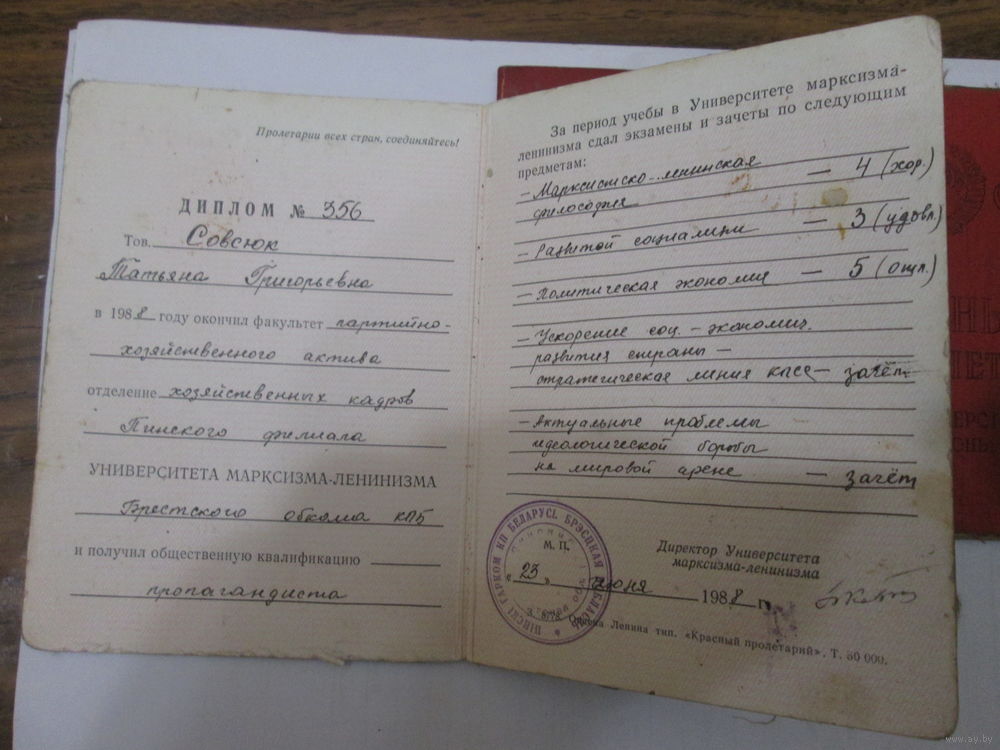 Пролетарии всех стран, соединяйтесь!
ДИПЛОМ № 356
Тов. Совсюк
Татьяна Григорьевна
в 1988 году окончил факультет партийно-
хозяйственного актива
отделение хозяйственных кадров
Пинского филиала
УНИВЕРСИТЕТА МАРКСИЗМА-ЛЕНИНИЗМА
Брестского обкома КПБ
и получил общественную квалификацию
пропагандиста
За период учебы в Университете марксизма-
ленинизма сдал экзамены и зачеты по следующим
предметам:
– Марксистско-ленинская — 4 (хор.)
философия
– Развитой социализм — 3 (удовл.)
– Политическая экономия — 5 (отл.)
– Ускорение соц.-экономич.
развития страны —
стратегическая линия КПСС — зачёт
– Актуальные проблемы
идеологической борьбы
на мировой арене — зачёт
ПІНСКІ ГАРКОМ КП БЕЛАРУСІ БРЭСЦКАЯ ВОБЛАСЦЬ
М. П.
Директор Университета
марксизма-ленинизма
«23» июня 1988 г.
Ордена Ленина тип. «Красный пролетарий». Т. 50 000.
www.ay.by